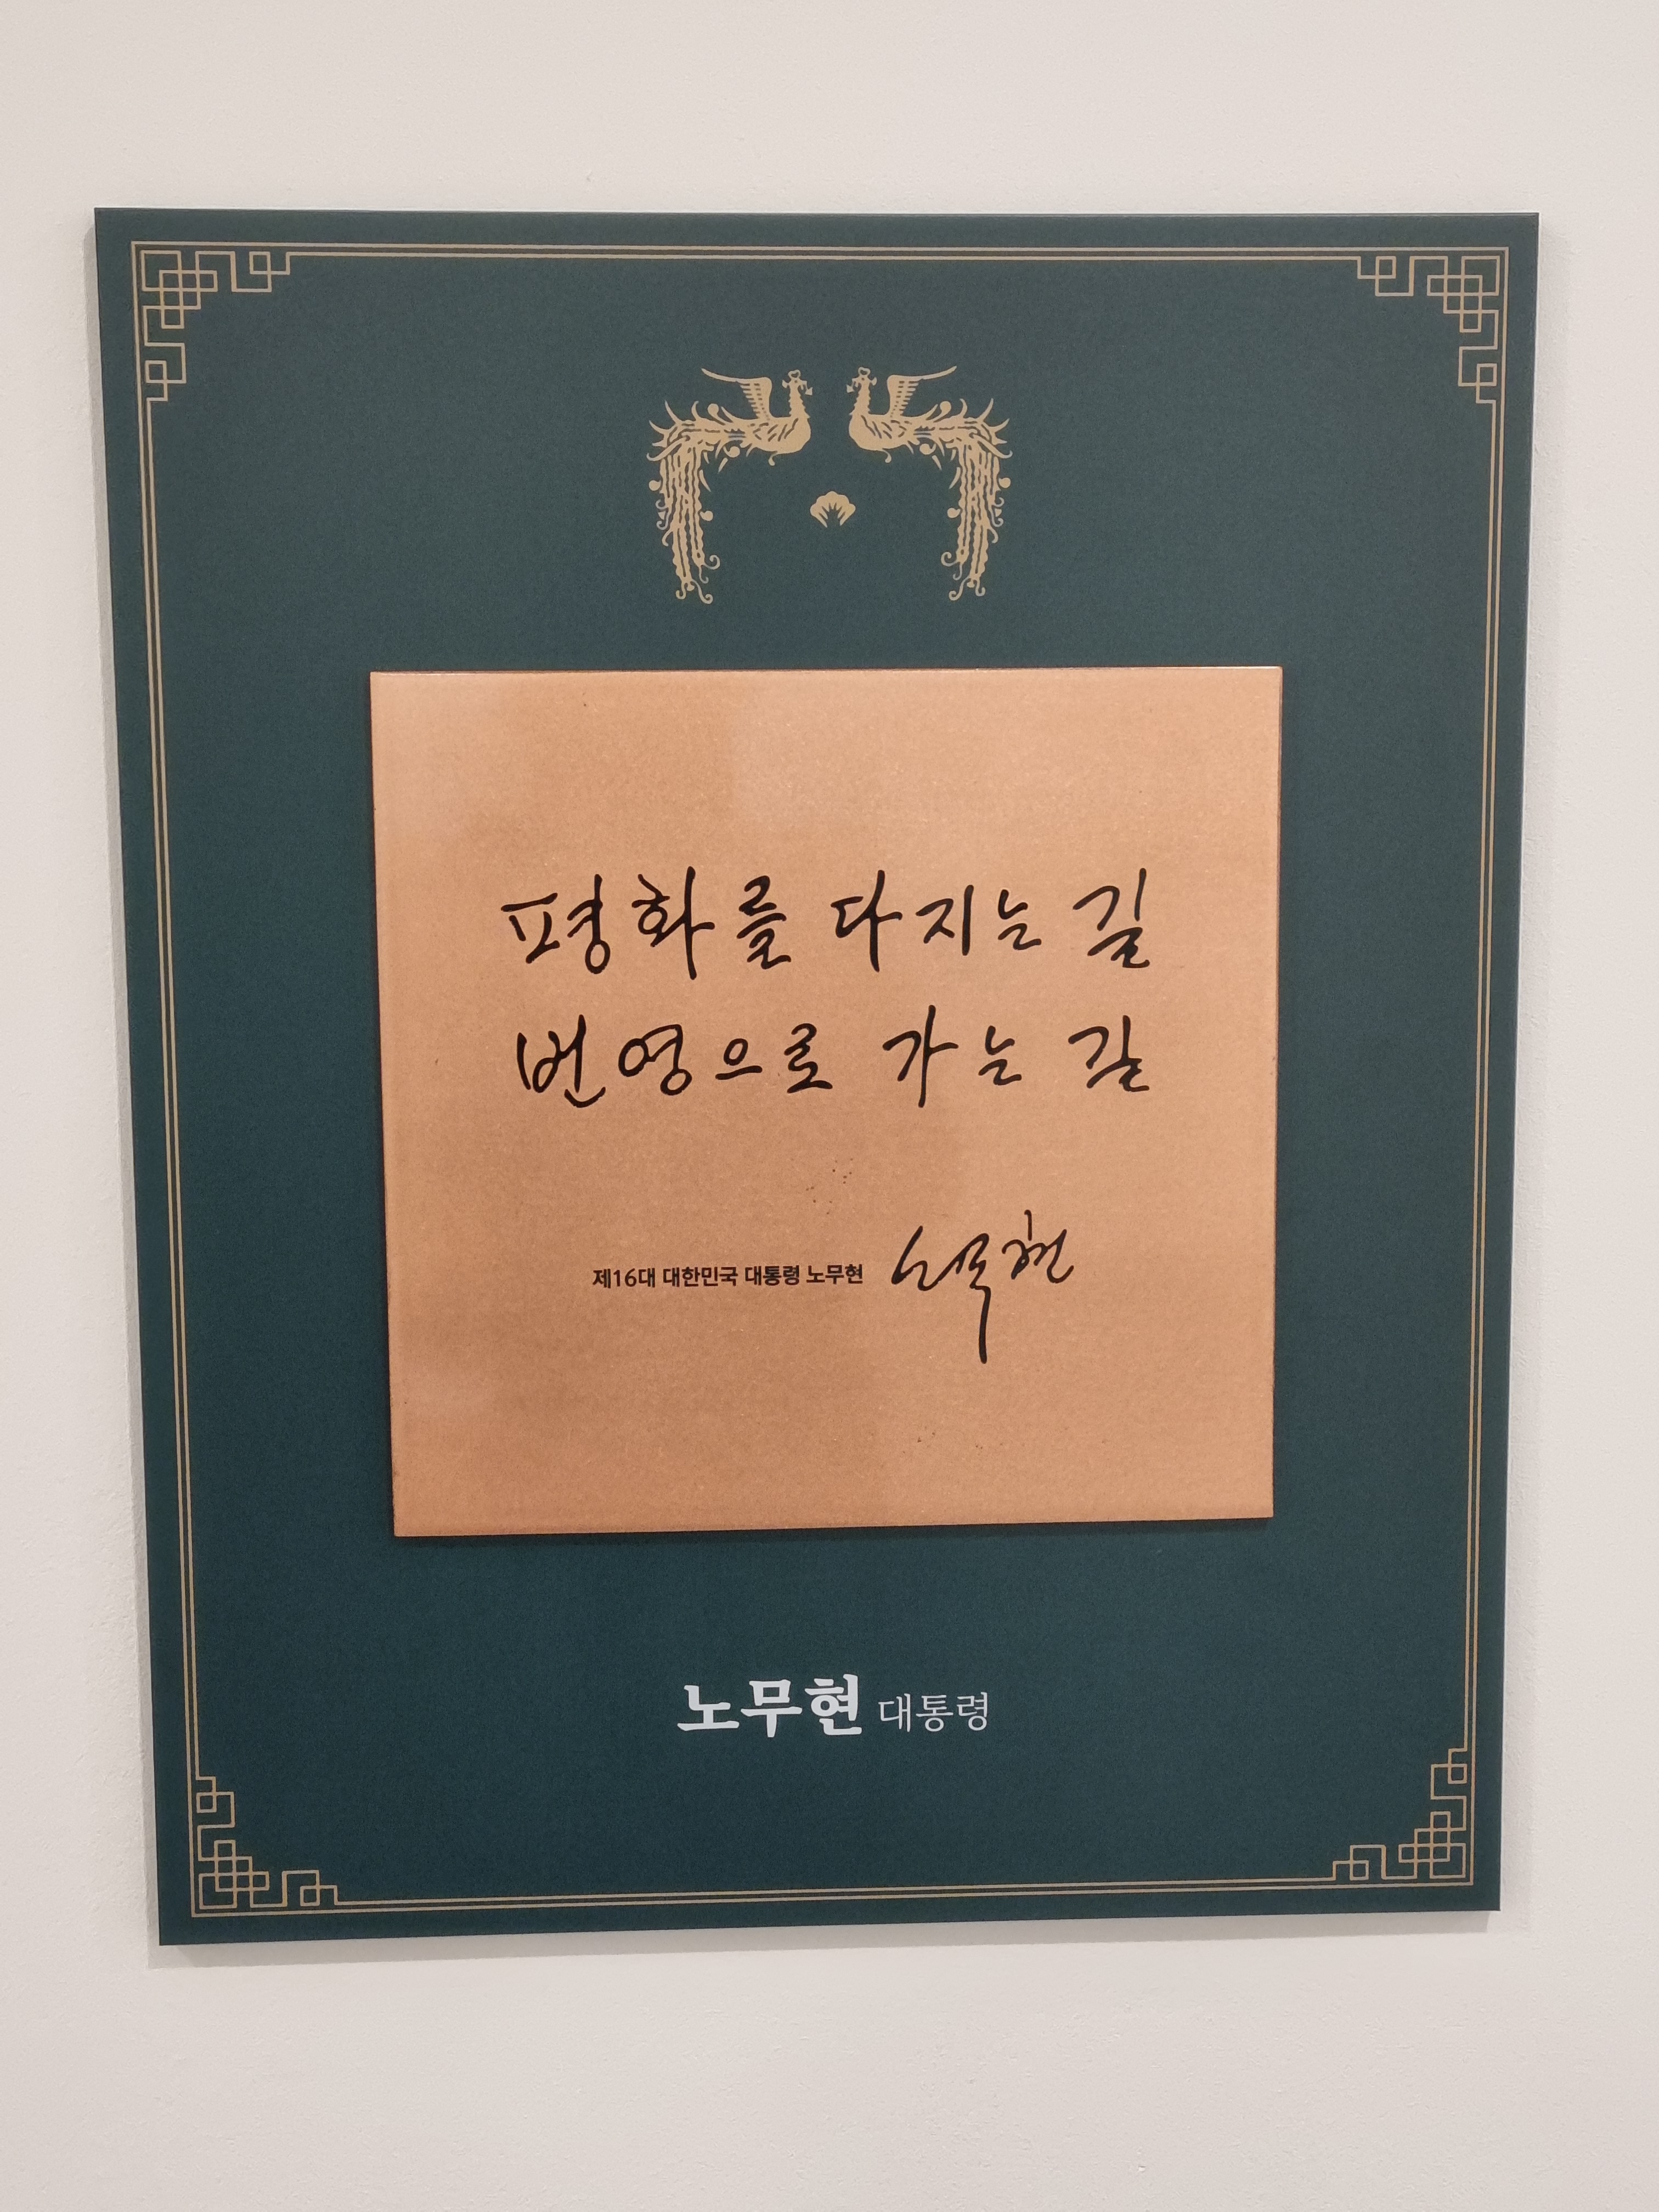 평화를 다지는 길
번영으로 가는 길
제16대 대한민국 대통령 노무현 노무현
노무현 대통령